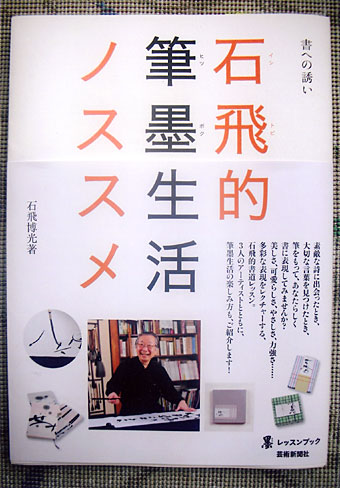 書への誘い
石飛的
イシ
トビ
筆墨生活
ヒツ
ボク
ノススメ
石飛博光著
素敵な詩に出会ったとき、
大切な言葉を見つけたとき、
筆をもって、あなたらしく
書に表現してみませんか?
美しさ、可愛らしさ、やさしさ、力強さ……
多彩な表現をレクチャーする、
石飛的書道レッスン。
3人のアーティストとともに、
筆墨生活の楽しみ方も、ご紹介します!
墨 レッスンブック
芸術新聞社